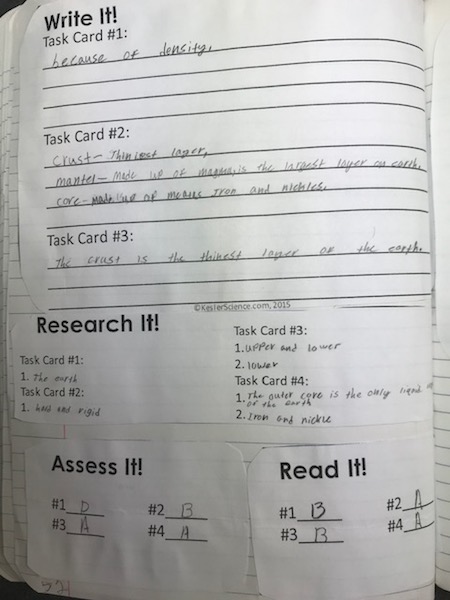 Write It!
Task Card #1:
because of density.
Task Card #2:
crust- Thinnest layer,
mantel- Made up of magma, is the largest layer on earth.
core- made up of metals Iron and nickles.
Task Card #3:
The crust is the thinest layer on the earth.
©KeslerScience.com, 2015
Research It!
Task Card #1:
1. The earth
Task Card #2:
1. hard and rigid
Task Card #3:
1. upper and lower
2. lower
Task Card #4:
1. The outer core is the only liquid
of the earth
2. Iron and nickle
Assess It!
#1 D #2 B
#3 A #4 A
Read It!
#1 B #2 A
#3 B #4 A